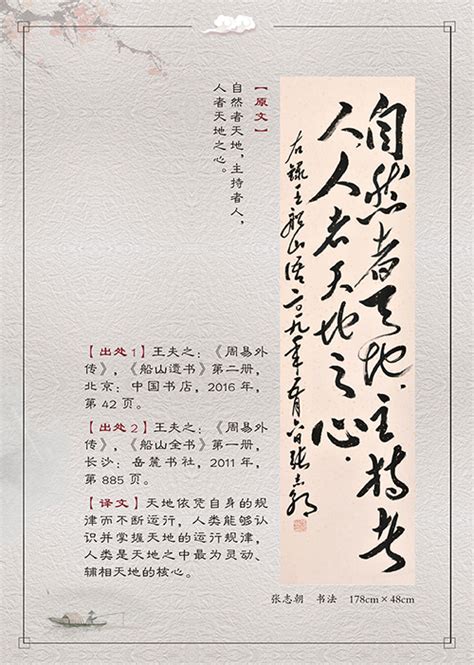 自然者天地，主持者
人，人者天地之心。
右録王船山语
【原文】
自然者天地，主持者人，
人者天地之心。
【出处1】王夫之：《周易外
传》，《船山遗书》第二册，
北京：中国书店，2016 年，
第 42 页。
【出处2】王夫之：《周易外
传》，《船山全书》第一册，
长沙：岳麓书社，2011 年，
第 885 页。
【译文】天地依凭自身的规
律而不断运行，人类能够认
识并掌握天地的运行规律，
人类是天地之中最为灵动、
辅相天地的核心。
张志朝 书法 178cm×48cm